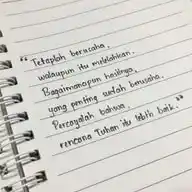 "Tetaplah berusaha,
walaupun itu melelahkan.
Bagaimanapun hasilnya,
yang penting sudah berusaha.
Percayalah bahwa,
rencana Tuhan itu lebih baik."